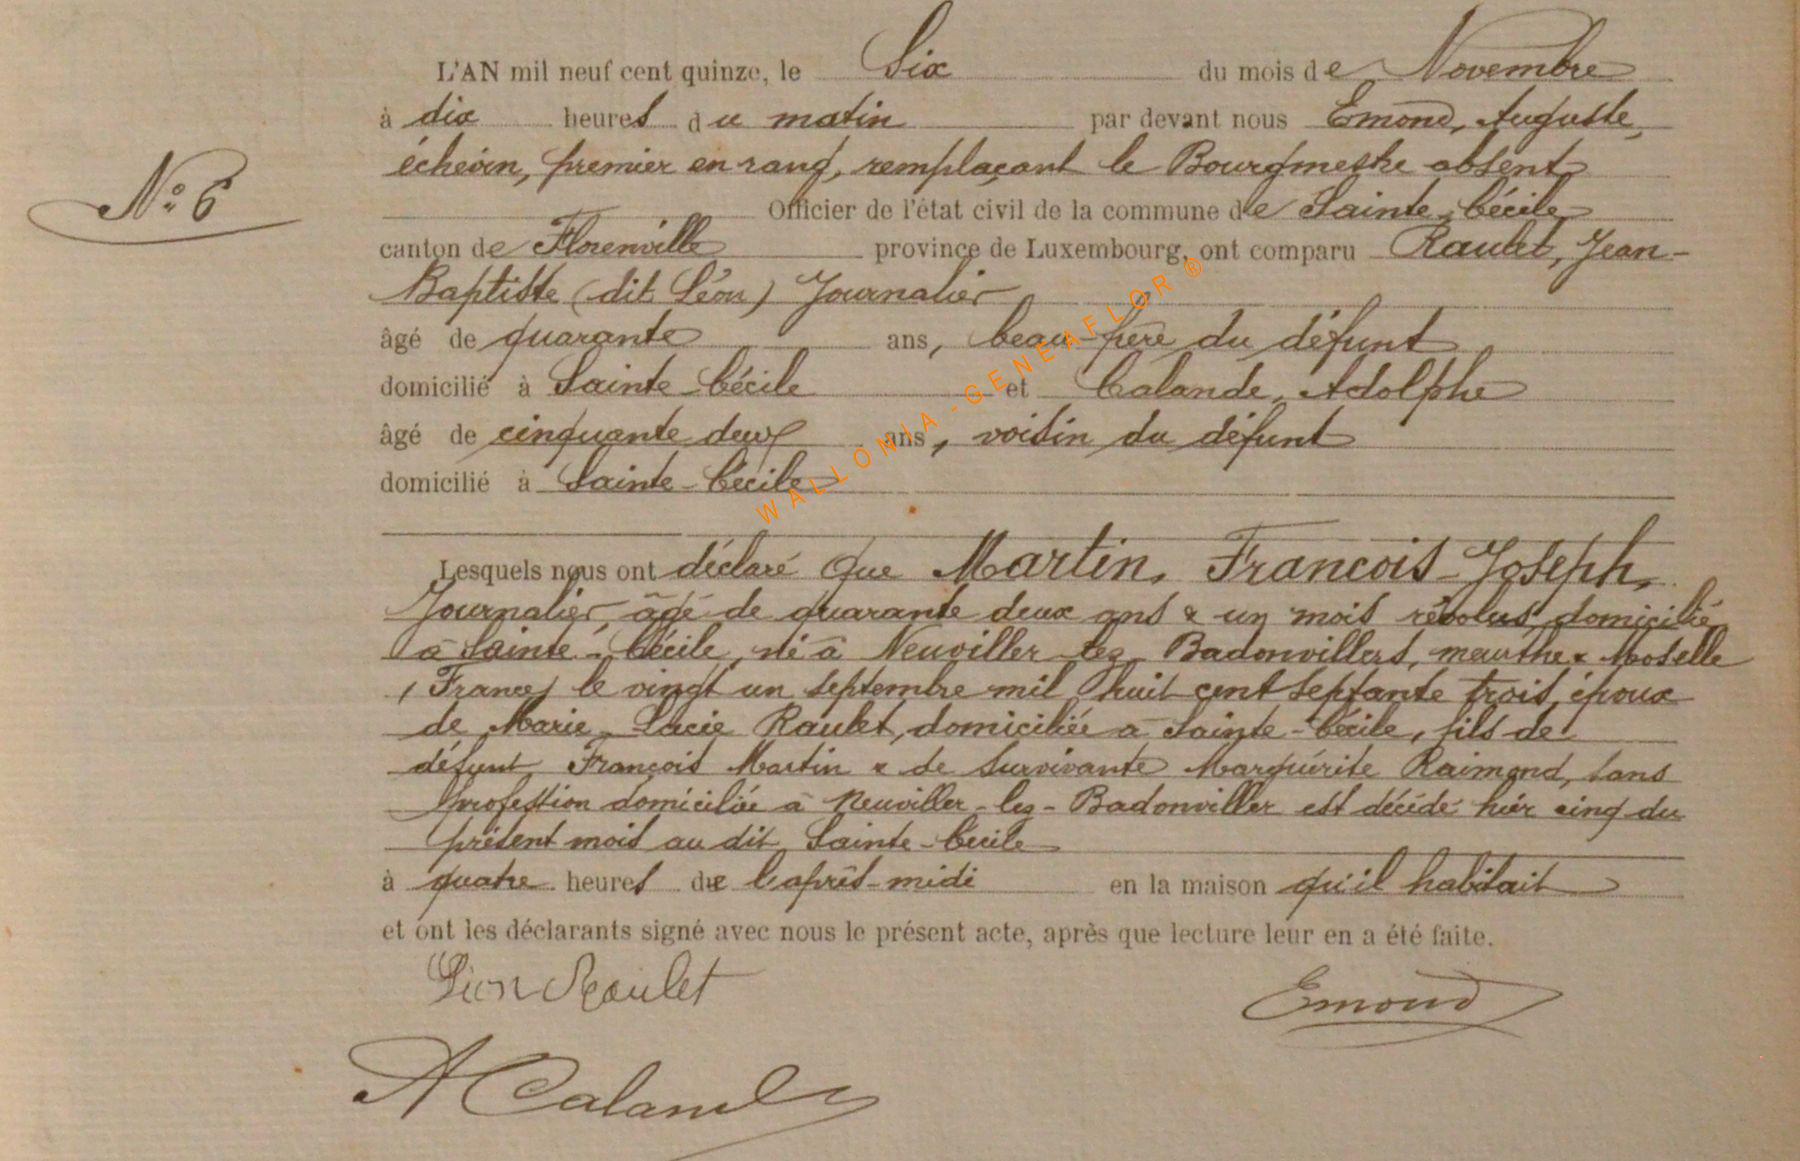 L'AN mil neuf cent quinze, le Six du mois de Novembre
à dix heures du matin par devant nous Emond, Auguste,
échevin, premier en rang, remplaçant le Bourgmestre absent
N° 6
Officier de l'état civil de la commune de Sainte-Cécile
canton de Florenville province de Luxembourg, ont comparu Raulet, Jean-
Baptiste (dit Léon) Journalier
âgé de quarante ans, beau-frère du défunt
domicilié à Sainte-Cécile et Calande, Adolphe
âgé de cinquante deux ans, voisin du défunt
domicilié à Sainte-Cécile
WALLONIA-GENEAFLOR ®
Lesquels nous ont déclaré que Martin, François-Joseph,
Journalier, âgé de quarante deux ans & un mois révolus, domicilié
à Sainte-Cécile, né à Neuviller-lez-Badonvillers, meurthe & Moselle
(France) le vingt un septembre mil huit cent septante trois, époux
de Marie-Lucie Raulet, domiciliée à Sainte-Cécile, fils de
défunt François Martin & de survivante Marguérite Raimond, sans
profession domiciliée à Neuviller-lez-Badonviller est décédé hier cinq du
présent mois au dit Sainte-Cécile
à quatre heures de l'après-midi en la maison qu'il habitait
et ont les déclarants signé avec nous le présent acte, après que lecture leur en a été faite.
Léon Raulet
Emond
A Calande